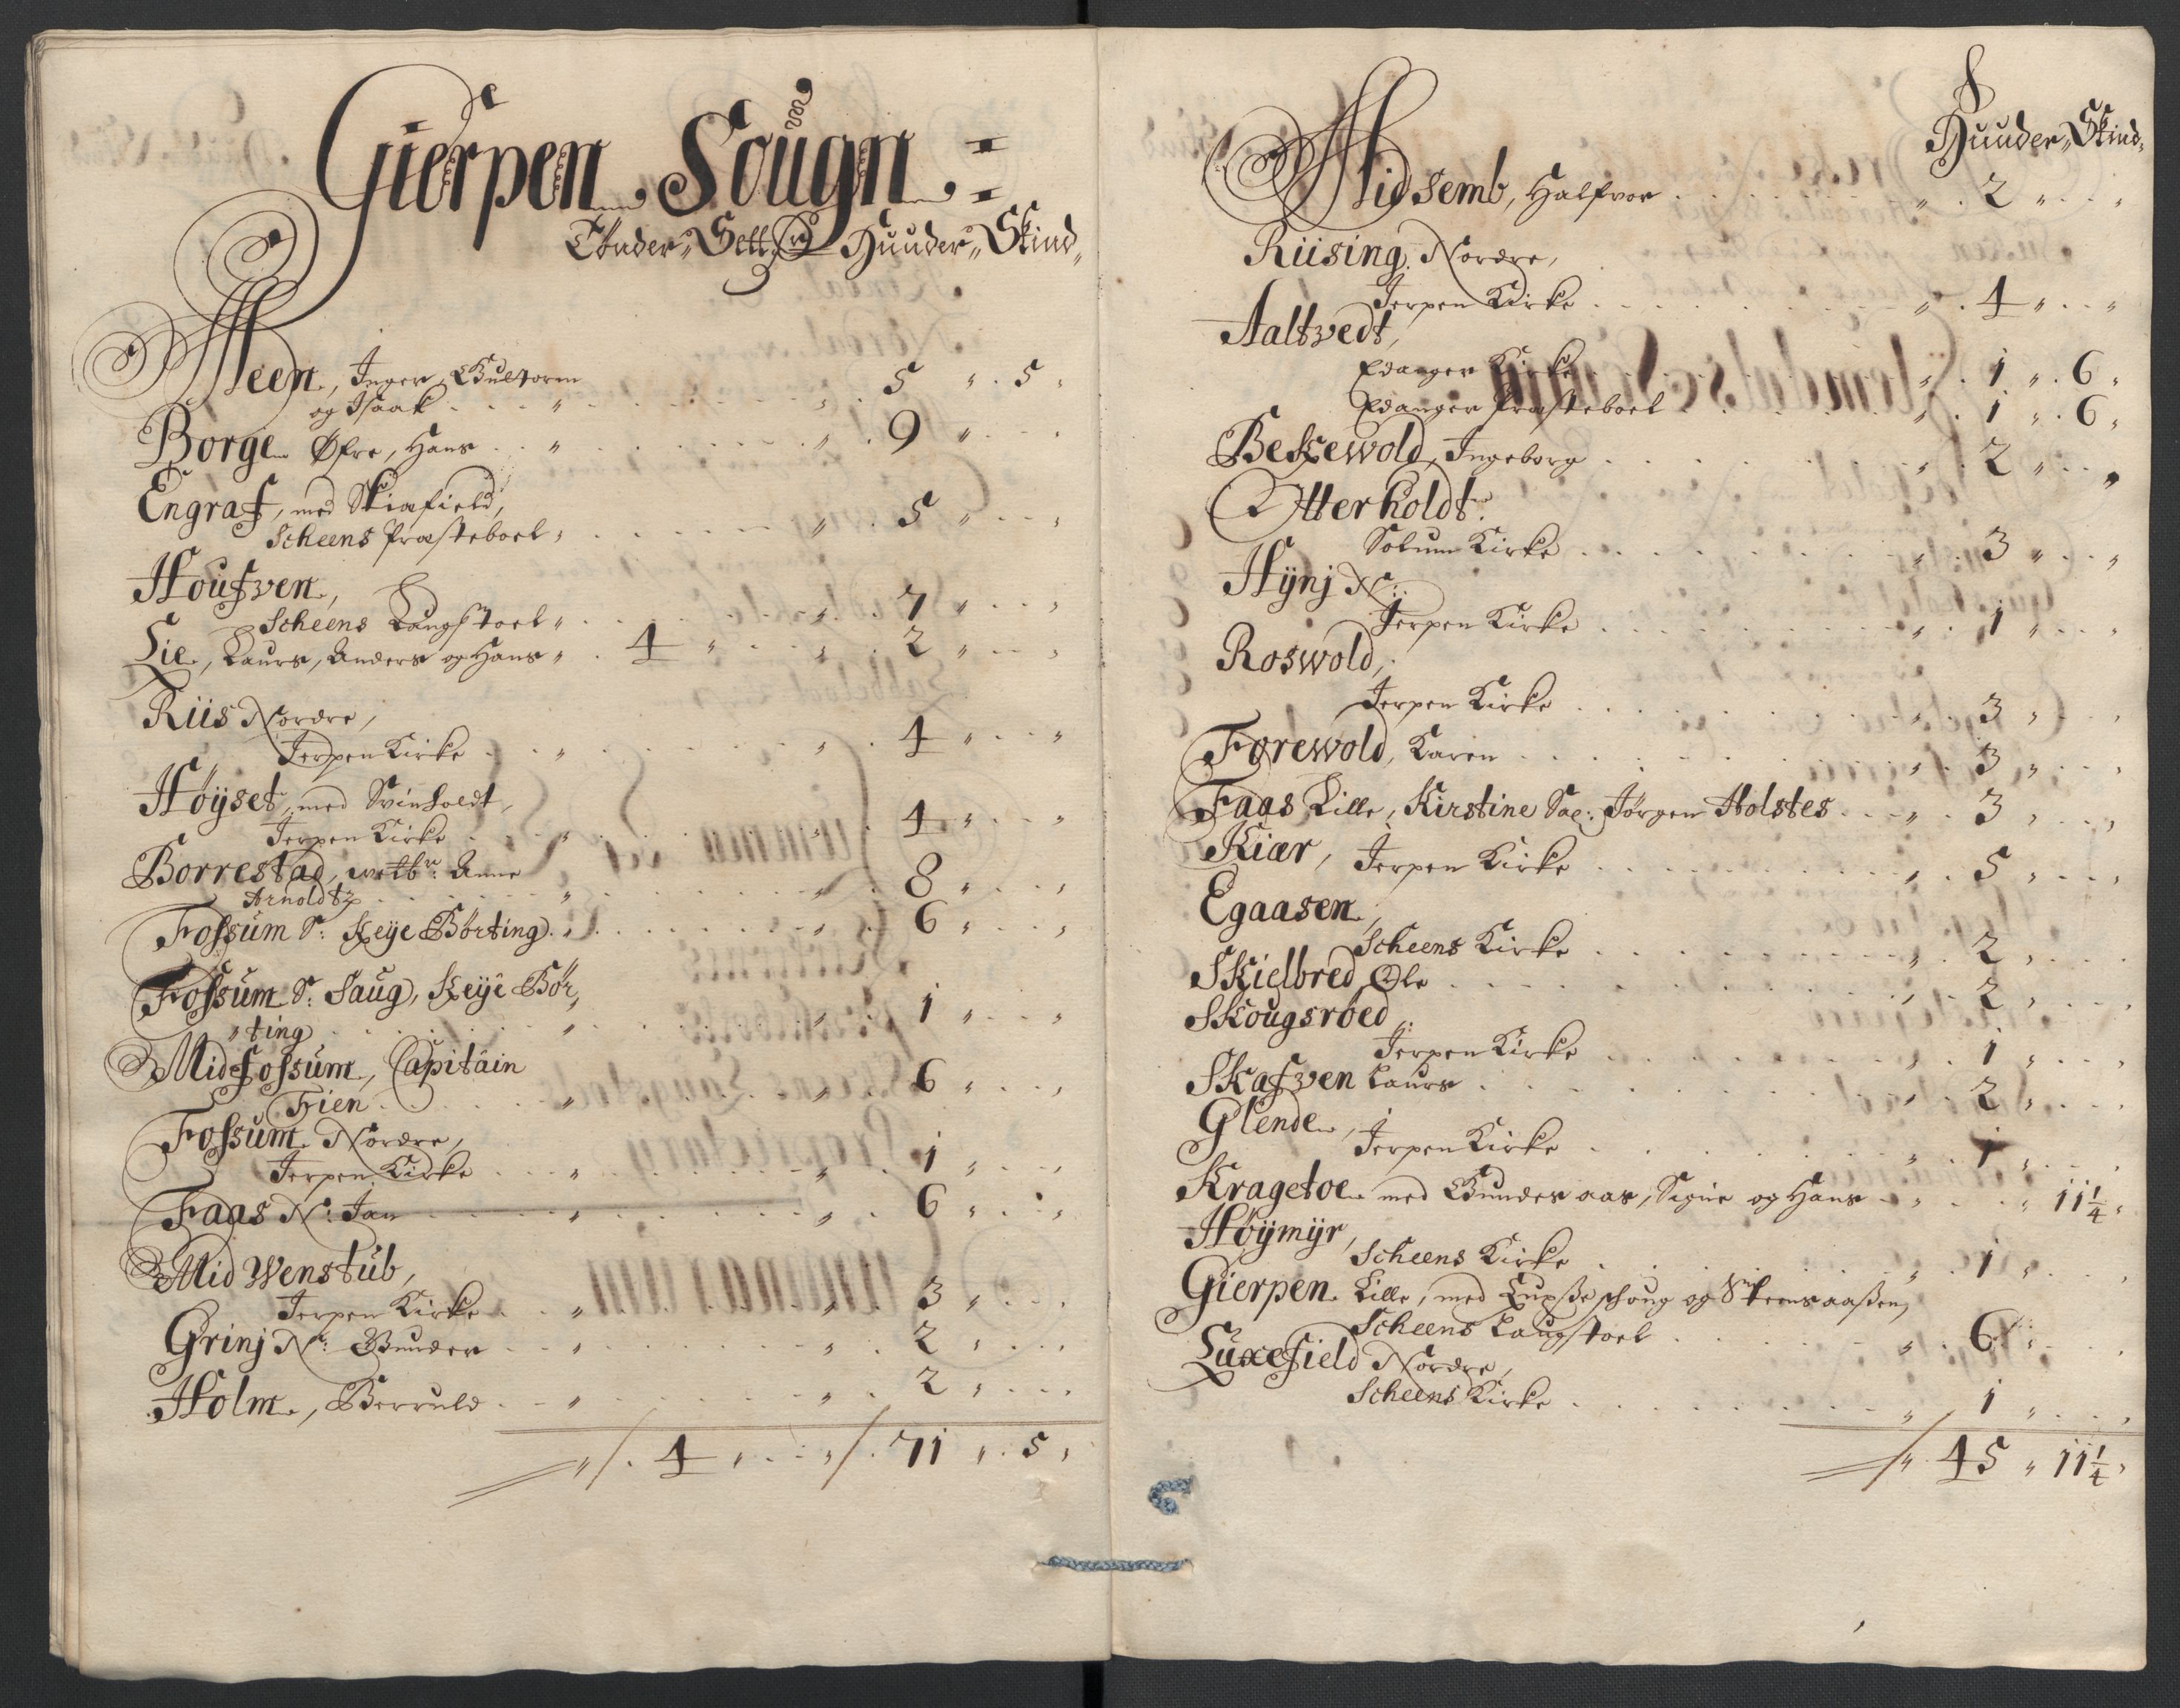 Gierpen Sougn
Tönder " Sett " Huuder " Skind "
Meen, Inger, Gultorm
og Isaak . . . " . . . " . 5 " . 5 "
Borge Øfre, Hans . . " . . . " . 9 " . . "
Engraf, med Skiafield,
Scheens Præsteboel " . . . " . 5 " . . "
Houfven,
Scheens Laugstoel " . . . " . 7 " . . "
Lie, Laurs, Anders og Hans " . 4 " . . " . 2 " . . "
Riis Nordre,
Jerpen Kirke . . " . . . " . 4 " . . "
Höÿset, med Svinholdt,
Jerpen Kirke . . " . . . " . 4 " . . "
Borrestad, welbr: Anne
Arnoldtz . . . " . . . " . 8 " . . "
Fossum S: Keÿe Börting . " . . . " . 6 " . . "
Fossum S: Saug, Keÿe Bör,
"ting . . . " . . . " . 1 " . . "
Mid Fossum, Capitain
Trien . . . " . . . " . 6 " . . "
Fossum Nordre,
Jerpen Kirke . . " . . . " . 1 " . . "
Faas N: Jan . . " . . . " . 6 " . . "
Mid Wenstüb,
Jerpen Kirke . . " . . . " . 3 " . . "
Grinj N: Gunder . . " . . . " . 2 " . . "
Holm, Berruld . . " . . . " . 2 " . . "
" / . 4 " . . " / . 71 " . 5 "
8
Huuder " Skind "
Midsemb, Halfvor . . . " . 2 " . . "
Riising Nordre,
Jerpen Kirke . . . " . 4 " . . "
Aaltvedt,
Edanger Kirke . . . " . 1 " . 6 "
Edanger Præsteboel . . . " . 1 " . 6 "
Bekewold, Ingeborg . . . " . 2 " . . "
Otterholdt.
Solum Kirke . . . " . 3 " . . "
Hÿnj N:
Jerpen Kirke . . . " . 1 " . . "
Roswold,
Jerpen Kirke . . . " . 3 " . . "
Forewold, Karen . . . " . 3 " . . "
Faas Lille, Kirstine Sal: Jörgen Holstes . . " . 3 " . . "
Kiær, Jerpen Kirke . . . " . 5 " . . "
Egaasen,
Scheens Kirke . . . " . 2 " . . "
Skielbred Ole . . . " . 2 " . . "
Skougsröed,
Jerpen Kirke . . . " . 1 " . . "
Skafven Laurs . . . " . 2 " . . "
Glende,
Jerpen Kirke . . . " . 1 " . . "
Kragetoe med Gunders aas, Signe og Hans . . " . . " 11 1/4 "
Höÿmÿr,
Scheens Kirke . . . " . 1 " . . "
Gierpen Lille, med og Steensaaßen,
Scheens Laugstoel . . . " . 6 " . . "
Luxefield Nordre,
Scheens Kirke . . . " . 1 " . . "
/ " 45 " 11 1/4 "